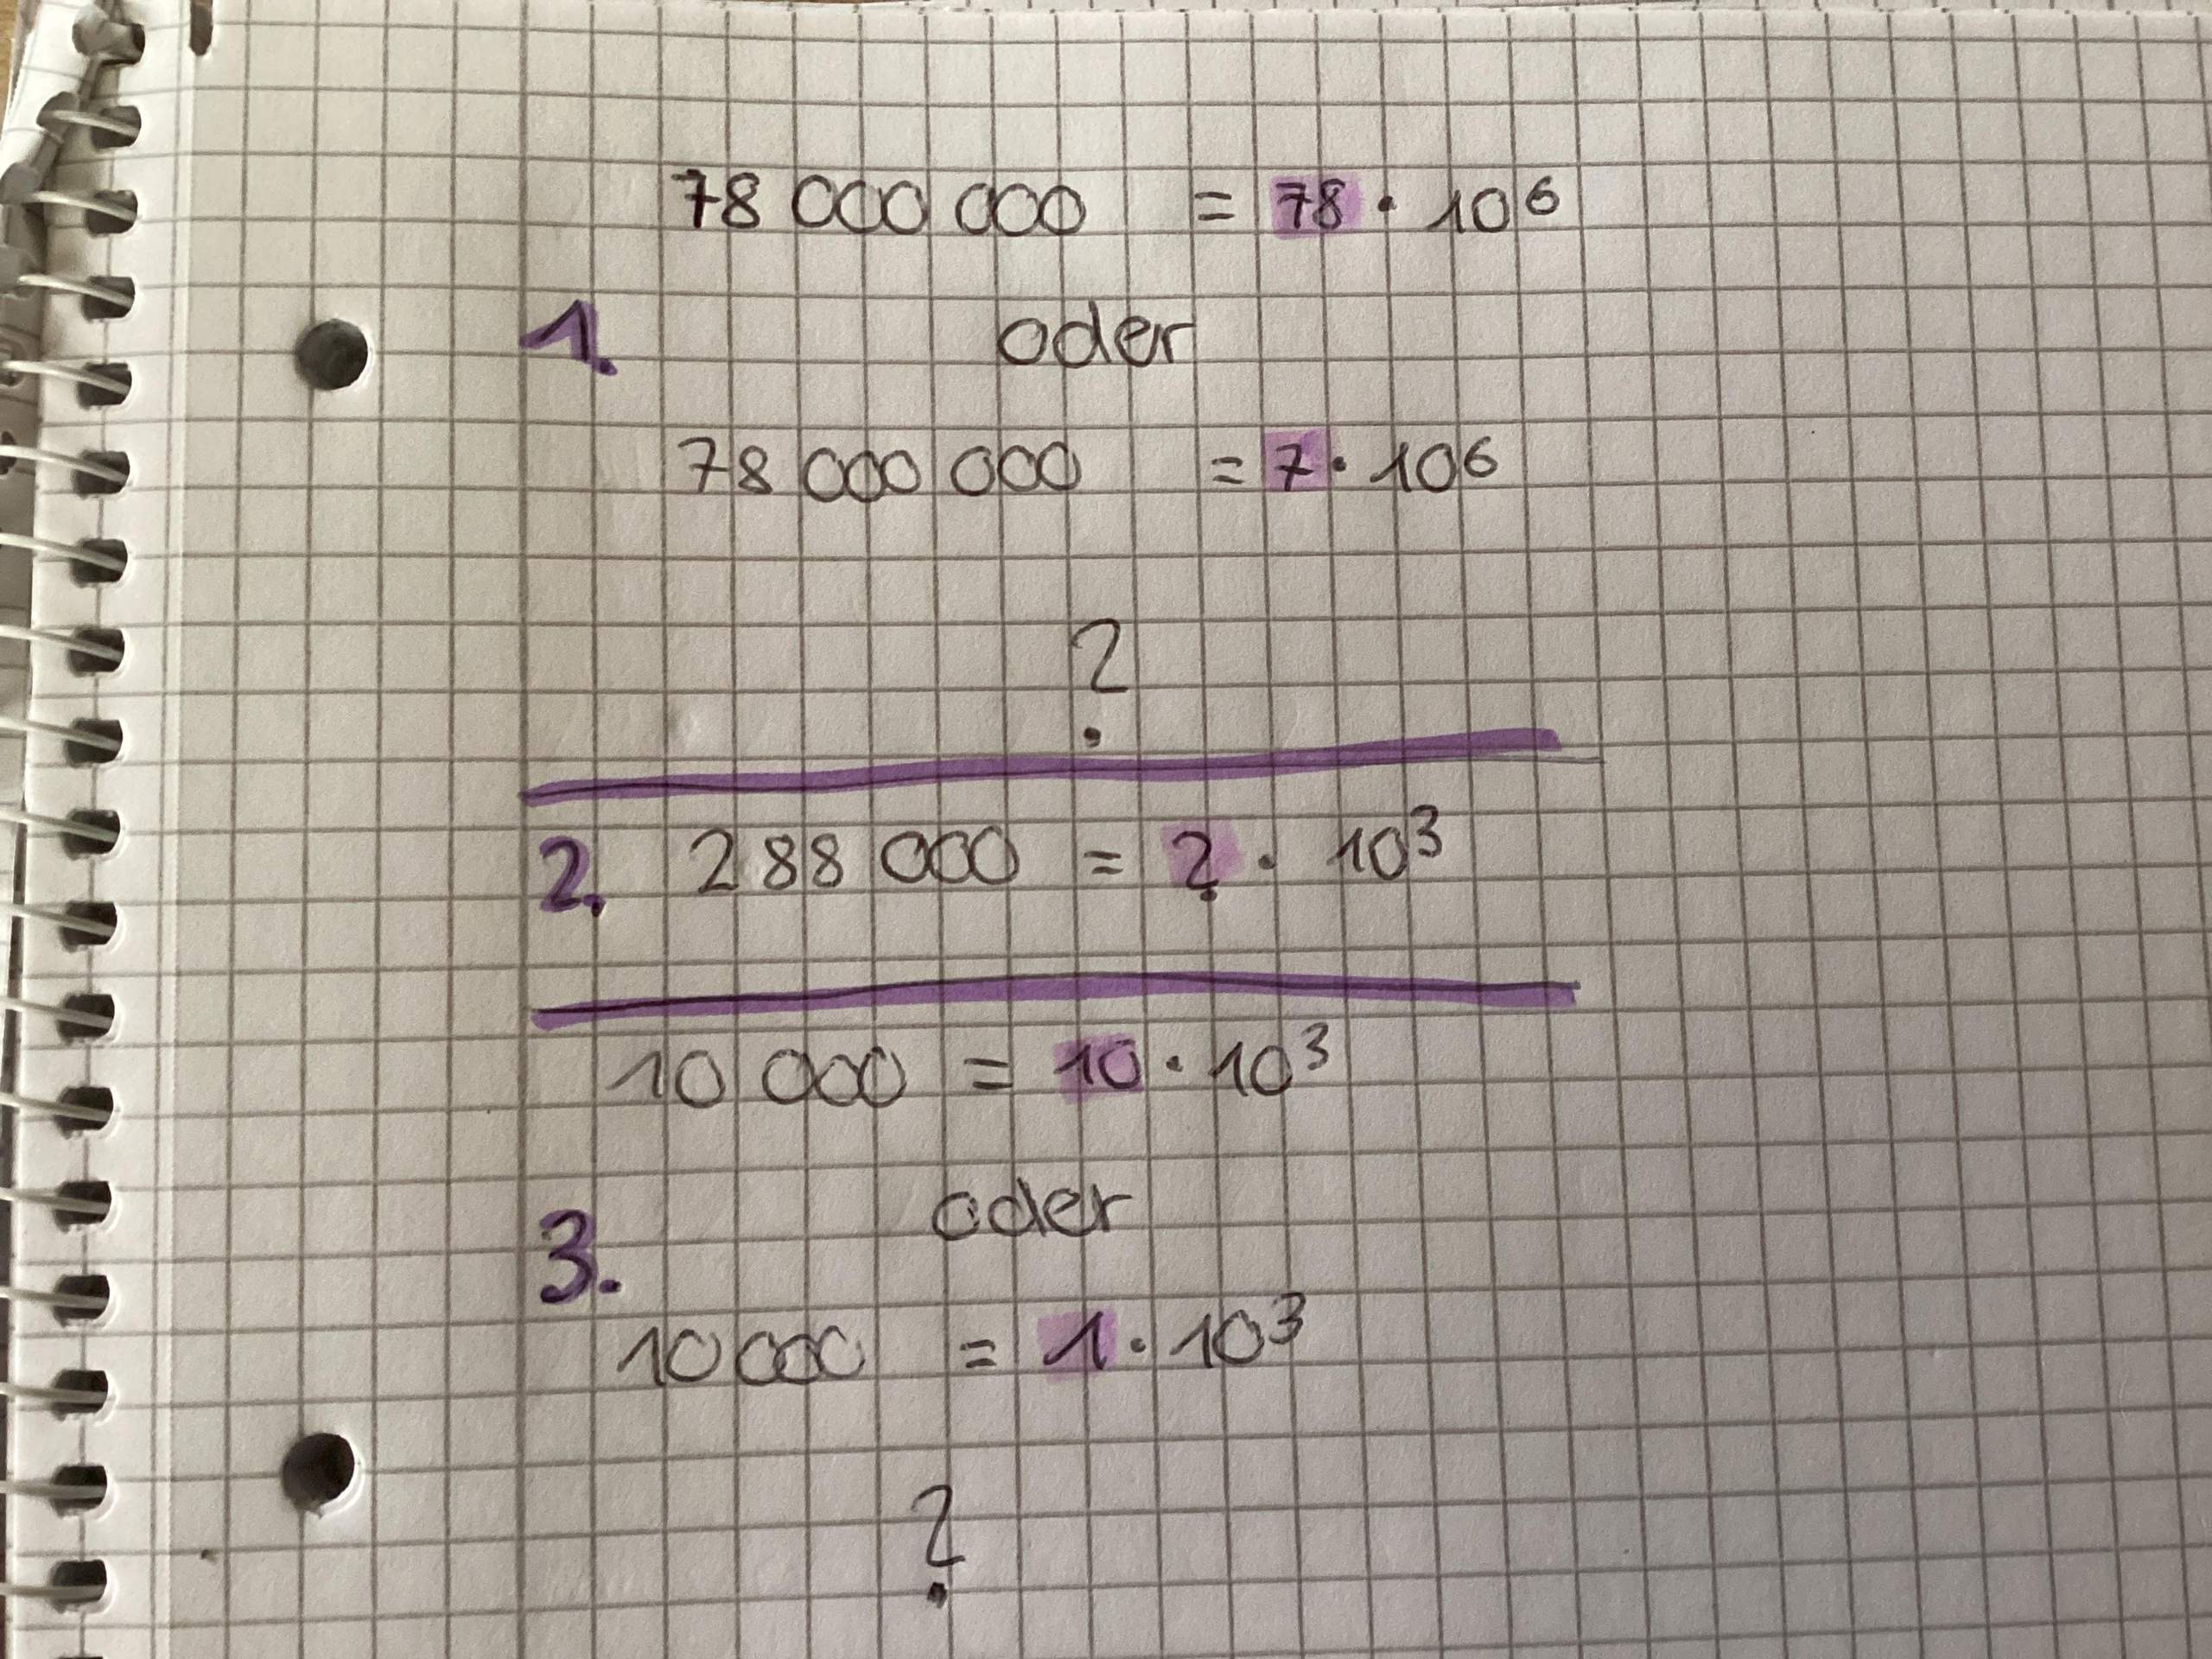 78 000 000 = 78 · 10⁶
1. oder
78 000 000 = 7 · 10⁶
?
2. 288 000 = ? · 10³
10 000 = 10 · 10³
3. oder
10 000 = 1 · 10³
?